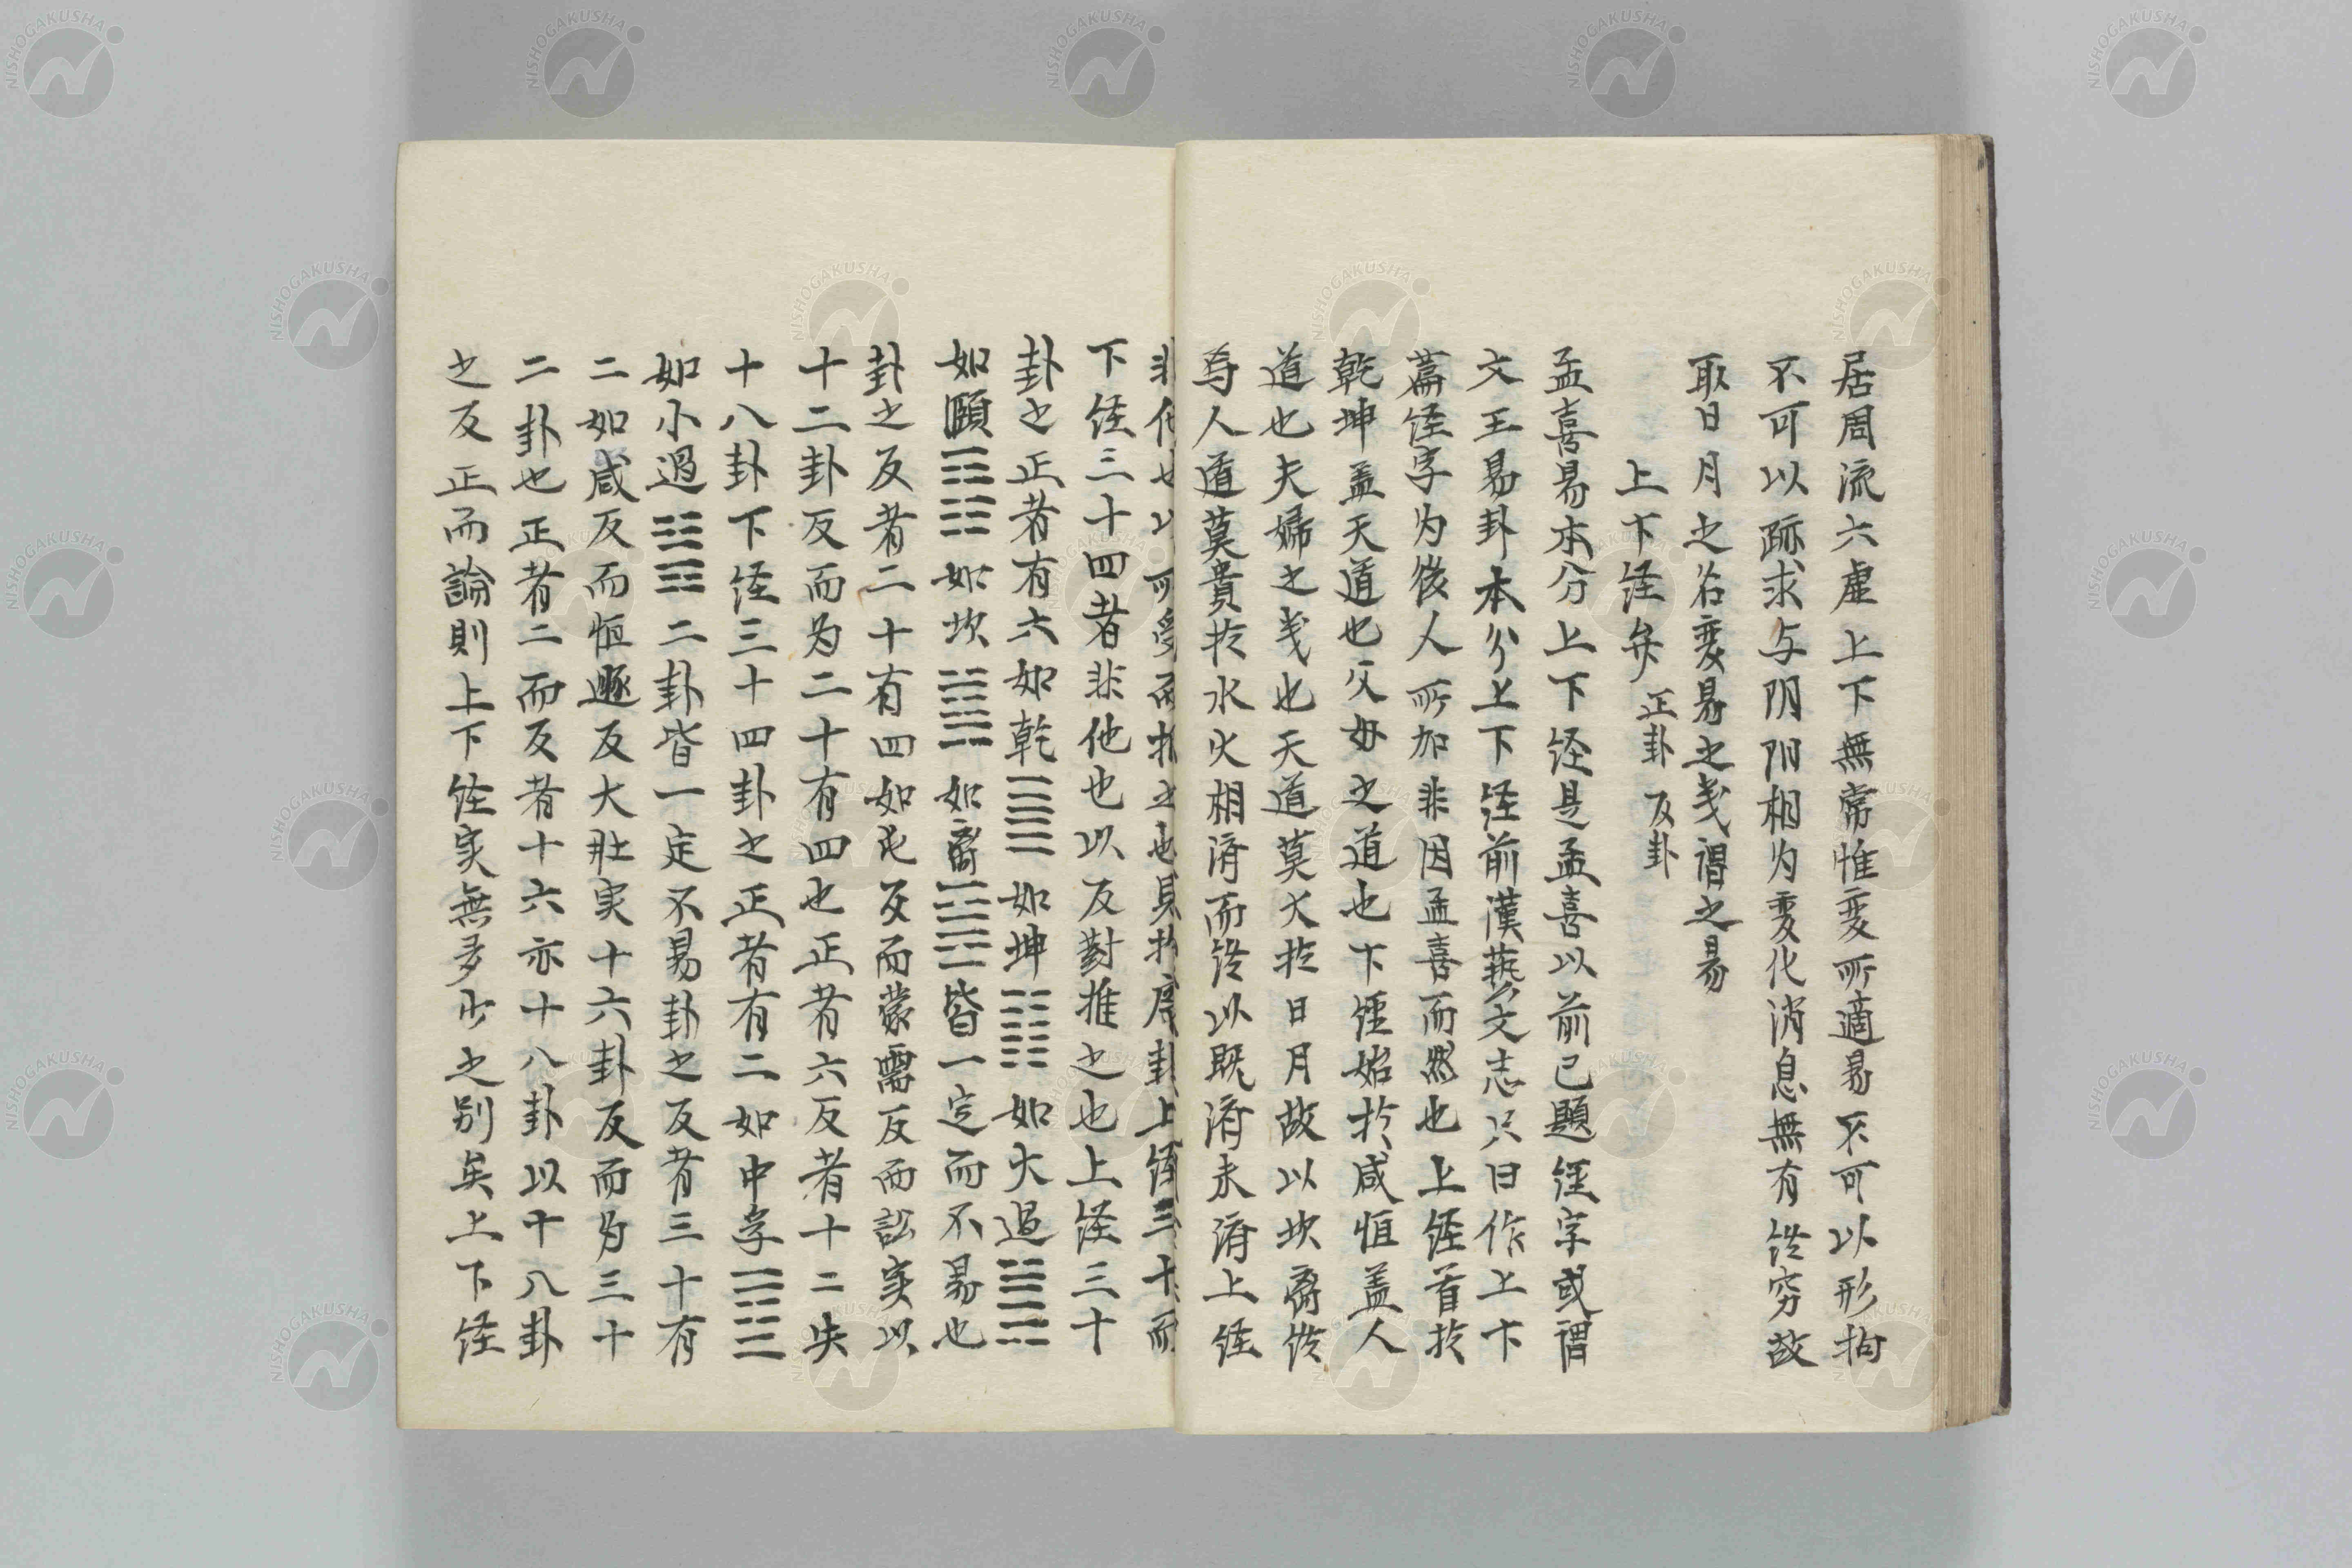 居周流六虚上下無常惟変所適易不可以形拘
不可以跡求与阴阳相为変化消息無有终穷故
取日月之名変易之义谓之易
上下经弁 正卦 反卦
孟喜易本分上下经是孟喜以前已題経字或谓
文王易卦本分上下经前漢藝文志只曰作上下
篇经字为後人所加非因孟喜而然也上经首於
乾坤盖天道也父母之道也下経始於咸恒盖人
道也夫婦之义也天道莫大於日月故以坎离终
与人道莫貴於水火相済而终以既済未済上经
下经三十四者非他也以反對推之也上经三十
卦之正者有六如乾䷀如坤䷁如大過䷛
如頤䷚如坎䷜如离䷝皆一定而不易也
卦之反者二十有四如屯反而蒙需反而訟实以
十二卦反而为二十有四也正者六反者十二失
十八卦下经三十四卦之正者有二如中孚䷼
如小過䷽二卦皆一定不易卦之反者三十有
二如咸反而恒遯反大壮实十六卦反而为三十
二卦也正者二而反者十六亦十八卦以十八卦
之反正而論則上下经实無多少之别矣上下经
NISHOGAKUSHA